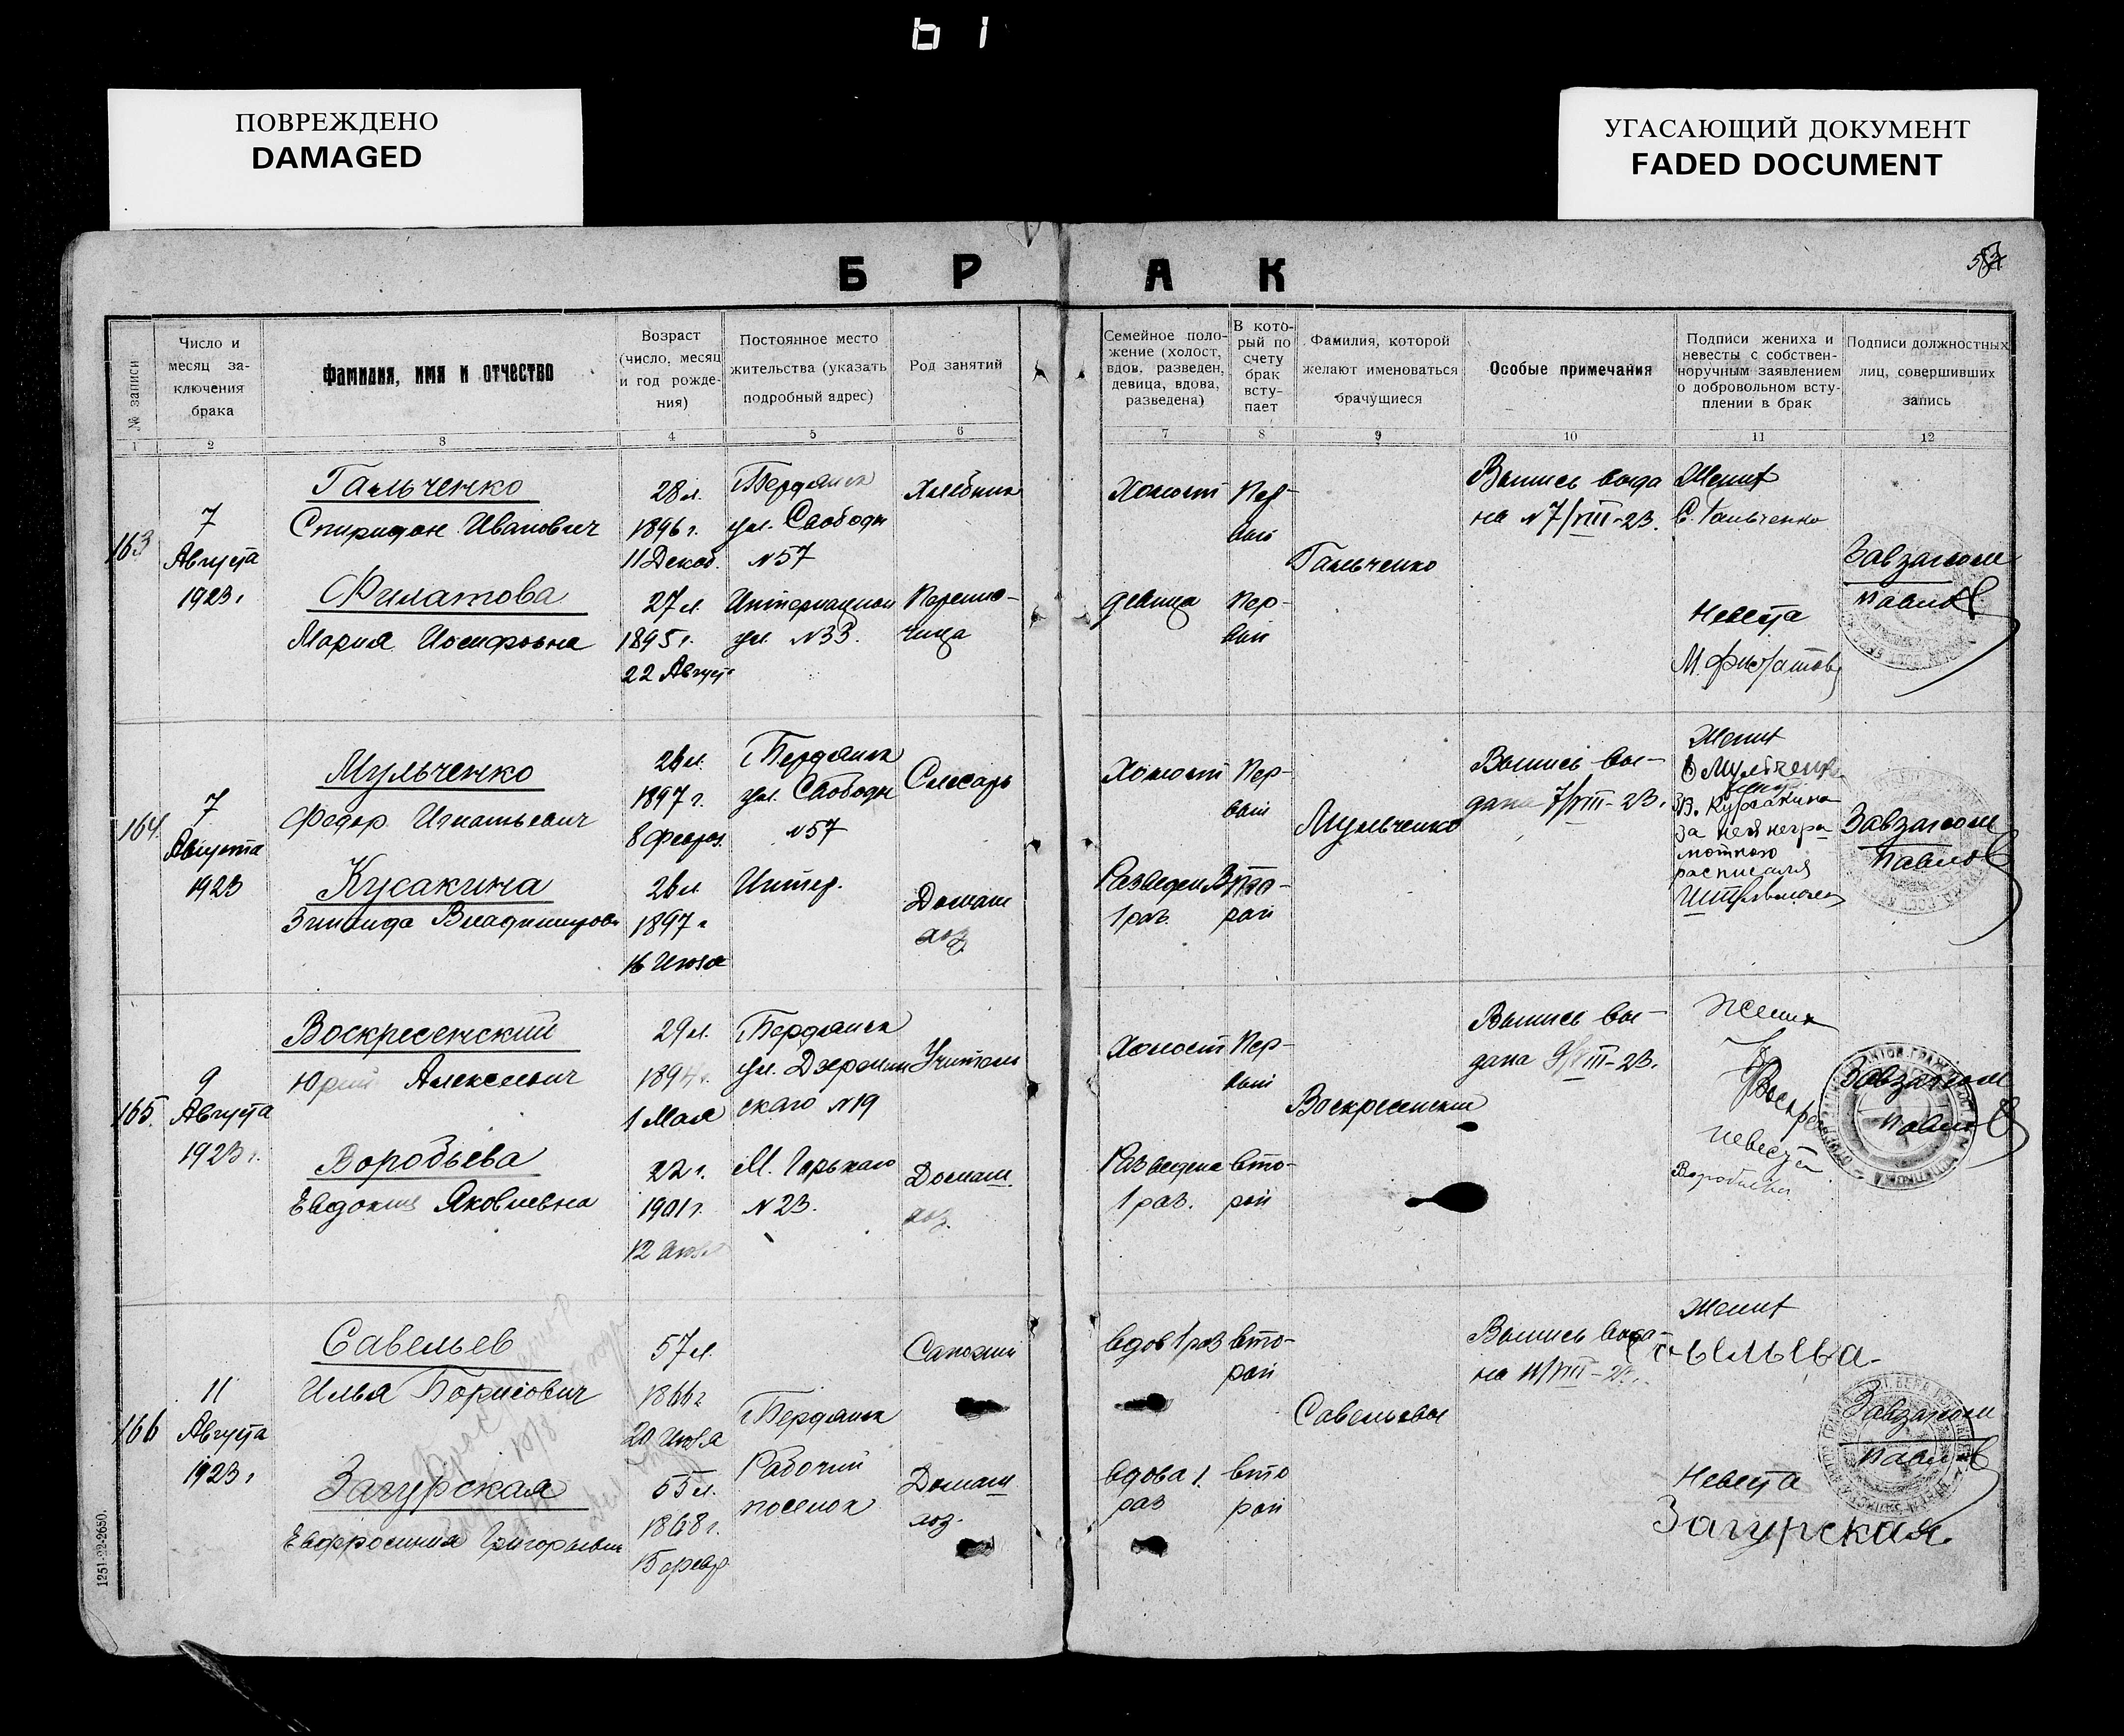 ПОВРЕЖДЕНО
DAMAGED
УГАСАЮЩИЙ ДОКУМЕНТ
FADED DOCUMENT
БРАК
№ записи
Число и
месяц за-
ключения
брака
Фамилия, имя и отчество
Возраст
(число, месяц
и год рожде-
ния)
Постоянное место
жительства (указать
подробный адрес)
Род занятий
Семейное поло-
жение (холост,
вдов, разведен,
девица, вдова,
разведена)
В кото-
рый по
счету
брак
всту-
пает
Фамилия, которой
желают именоваться
брачущиеся
Особые примечания
Подписи жениха и
невесты с собствен-
норучным заявлением
о добровольном всту-
плении в брак
Подписи должностных
лиц, совершивших
запись
1 2 3 4 5 6 7 8 9 10 11 12
163
7
Августа
1923г
Гальченко
Спиридон Иванович
28 л.
1896 г.
11 Декаб.
Бердянск
ул. Свободы
№57
Хлебник
Холост
Пер-
вый
Филатова
Мария Иосифовна
27 л.
1895 г.
22 Август
Интернацион
ул. №33.
девица
Пер-
вый
Гальченко
Выпись выда
на 7/VIII-23.
Жених
С. Гальченко
Невеста
М. Филатова
Завзагсом
Павлов
164
7
Августа
1923
Мульченко
Федор Игнатьевич
26 л.
1897 г.
8 Феврал.
Бердянск
ул. Свободы
№57
Слесарь
Холост
Пер-
вый
Кусакина
Зинаида Владимировн
26 л.
1897 г
16 Июля
Интер.
Домаш
хоз.
Разведен
1 раз.
Вто-
рой
Мульченко
Выпись вы-
дана 7/VIII-23.
Жених
Мульченко
за неё негра
мотную
расписался
Завзагсом
Павлов
165.
9
Августа
1923 г.
Воскресенский
Юрий Алексеевич
29 л.
1894 г.
1 Мая
Бердянск
ул. Дзержин
ского №19
Учитель
Холост
Пер-
вый
Воробьева
Евдокия Яковлевна
22 г.
1901 г.
М. Горького
№23.
Домаш.
хоз.
Разведена
1 раз.
вто-
рой
Воскресенские
Выпись вы-
дана 9/VIII-23.
Жених
невеста
Воробьева
Завзагсом
Павлов
166
11
Августа
1923 г
Савельев
Илья Борисович
57 л.
1866 г
20 Июля
Бердянск
Рабочий
поселок
Сапожник
вдов 1 раз
вто-
рой
Загурская
Евфросиния Григорьевна
55 л.
1868 г.
Домаш
хоз.
вдова 1.
раз
вто
рой
Савельевы
Выпись выда-
на 11/VIII-23.
Жених
Невеста
Загурская.
Завзагсом
Павлов
1251-22-2650.